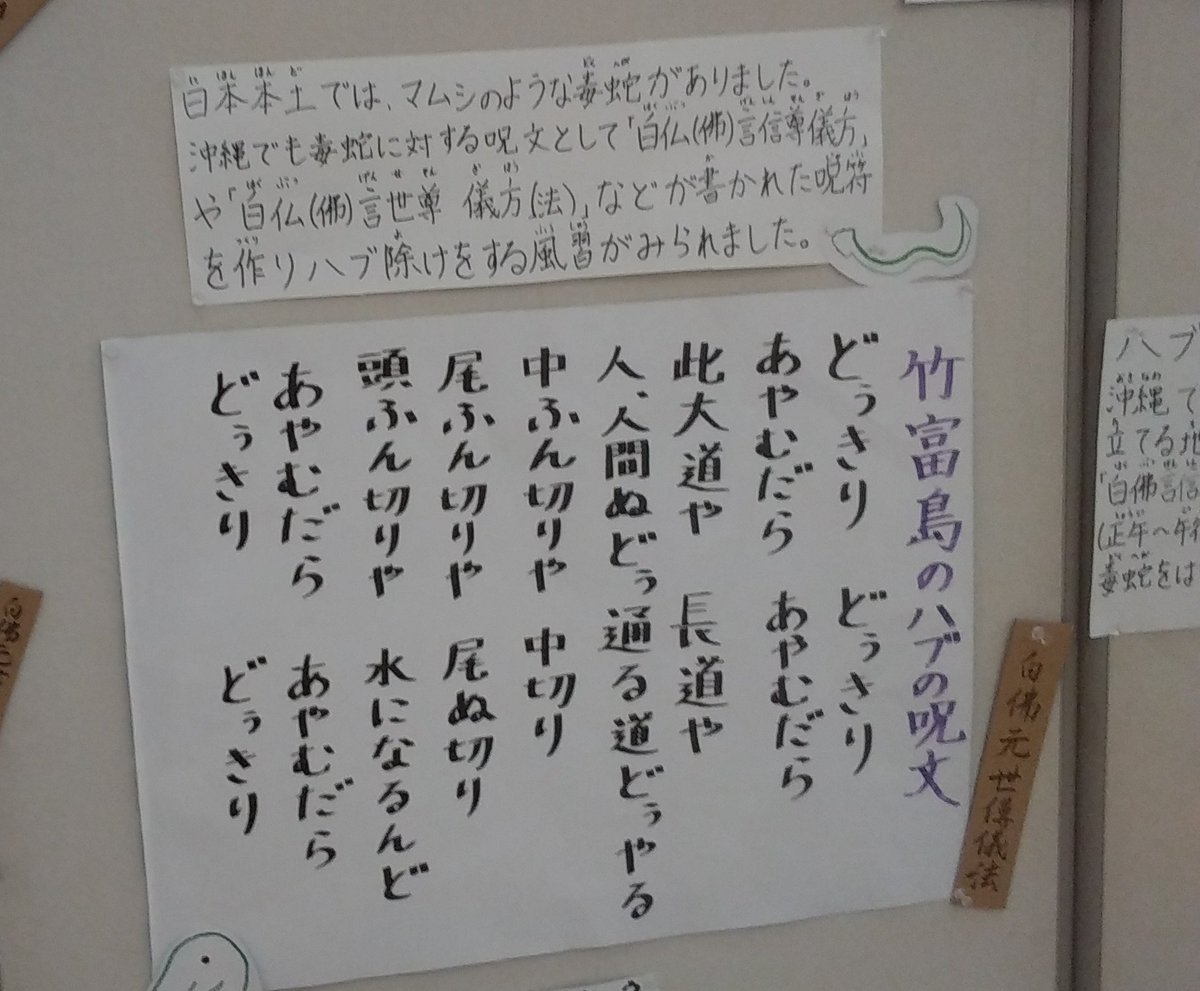 日本本土では、マムシのような毒蛇がありました。
沖縄でも毒蛇に対する呪文として「白仏(佛)言信尊儀方」
や「白仏(佛)言世尊 儀方(法)」などが書かれた呪符
を作りハブ除けをする風習がみられました。
竹富島のハブの呪文
どぅきり どぅきり
あやむだら あやむだら
此大道や 長道や
人、人間ぬどぅ通る道どぅやる
中ふん切りや 中切り
尾ふん切りや 尾ぬ切り
頭ふん切りや 水になるんど
あやむだら あやむだら
どぅきり どぅきり
白佛元世儀法
ハブ
沖縄で
立てる地
「白佛言信
(正午〜午
毒蛇をは